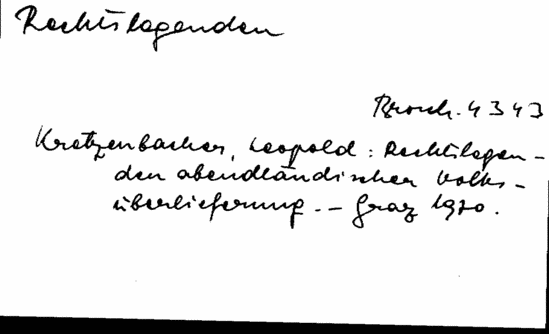 Rechtslegenden
Brosch. 4343
Kretzenbacher, Leopold: Rechtslegen-
den abendländischer Volks-
überlieferung. – Graz 1970.